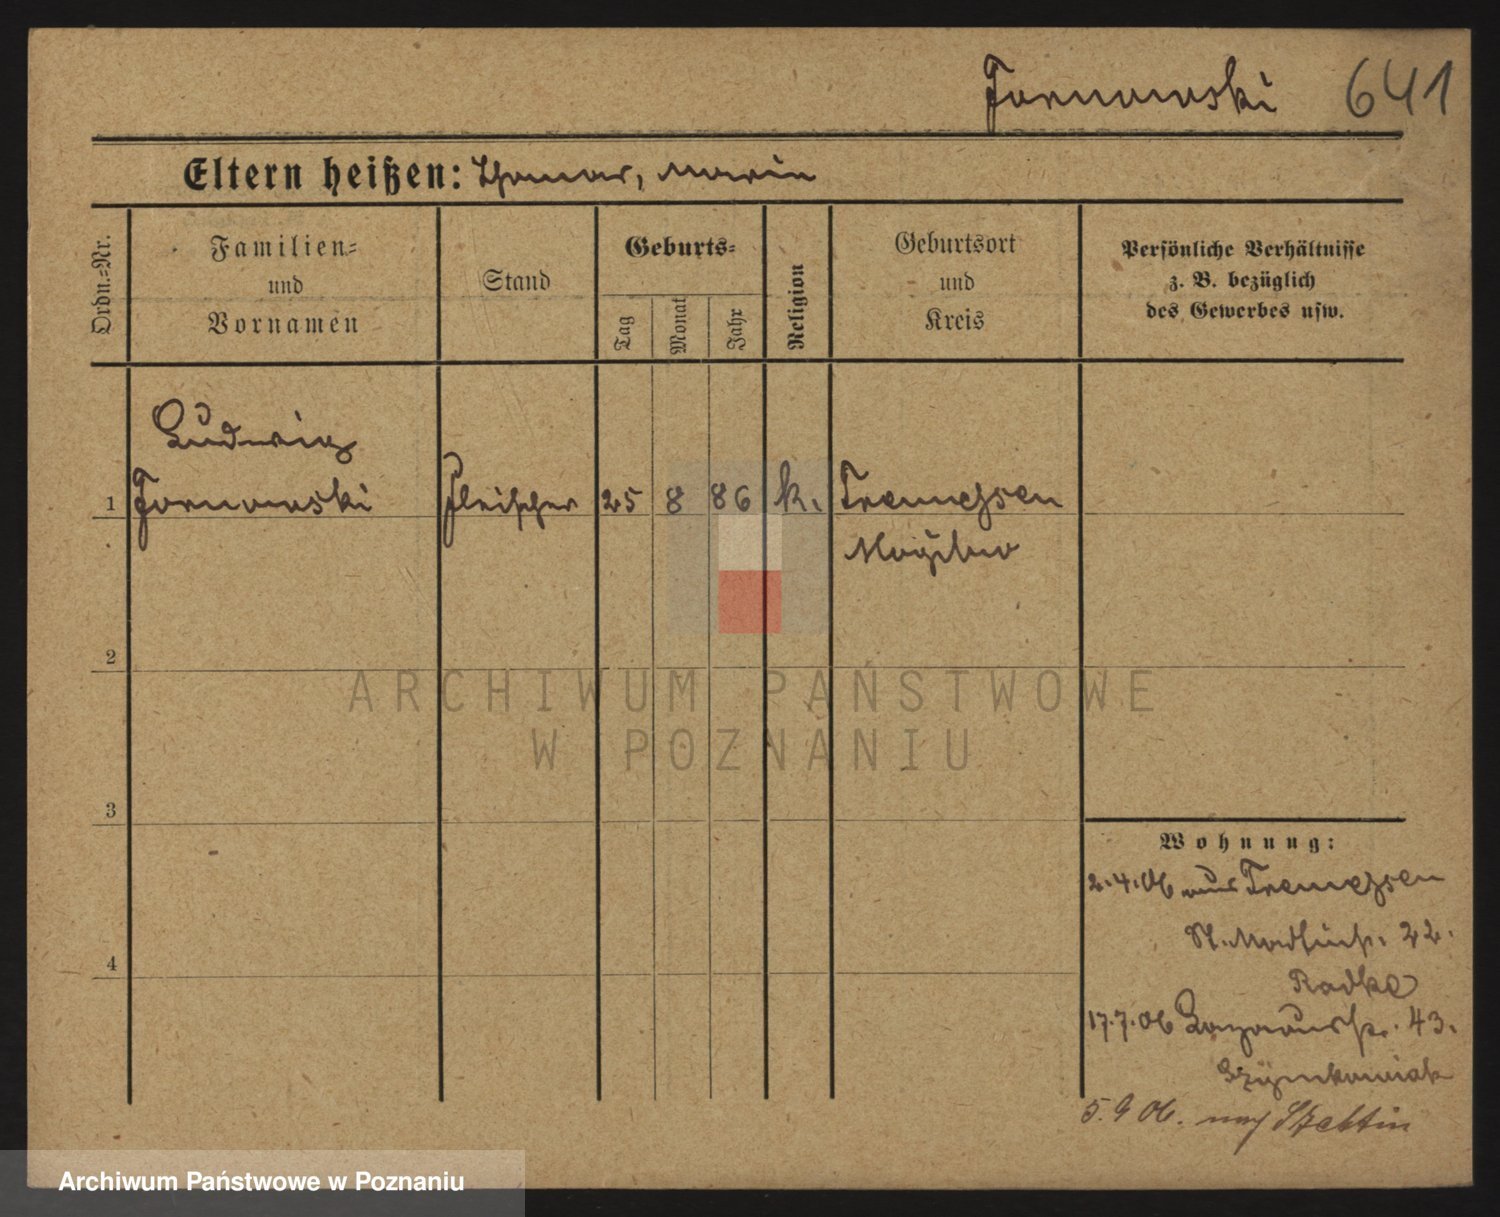 Tornowski 641
Eltern heißen: Thomas, Maria
Ordn.-Nr.
Familien-
und
Vornamen
Stand
Geburts-
Tag
Monat
Jahr
Religion
Geburtsort
und
Kreis
Persönliche Verhältnisse
z. B. bezüglich
des Gewerbes usw.
Ludwig
1 Tornowski Fleischer 25 8 86 k. Tremessen
Mogilno
2
ARCHIWUM PAŃSTWOWE
W POZNANIU
3
Wohnung:
2.4.06 aus Tremessen
St. Martinstr. 22.
Radke
4
17.7.06 Lazarusstr. 43.
Szymkowiak
5.9.06. nach Stettin
Archiwum Państwowe w Poznaniu